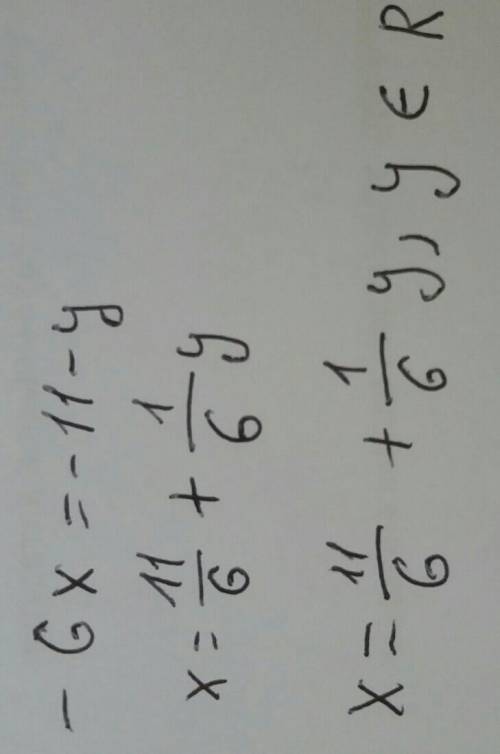 - 6x = - 11 - y
x = 11/6 + 1/6 y
x = 11/6 + 1/6 y, y ∈ R